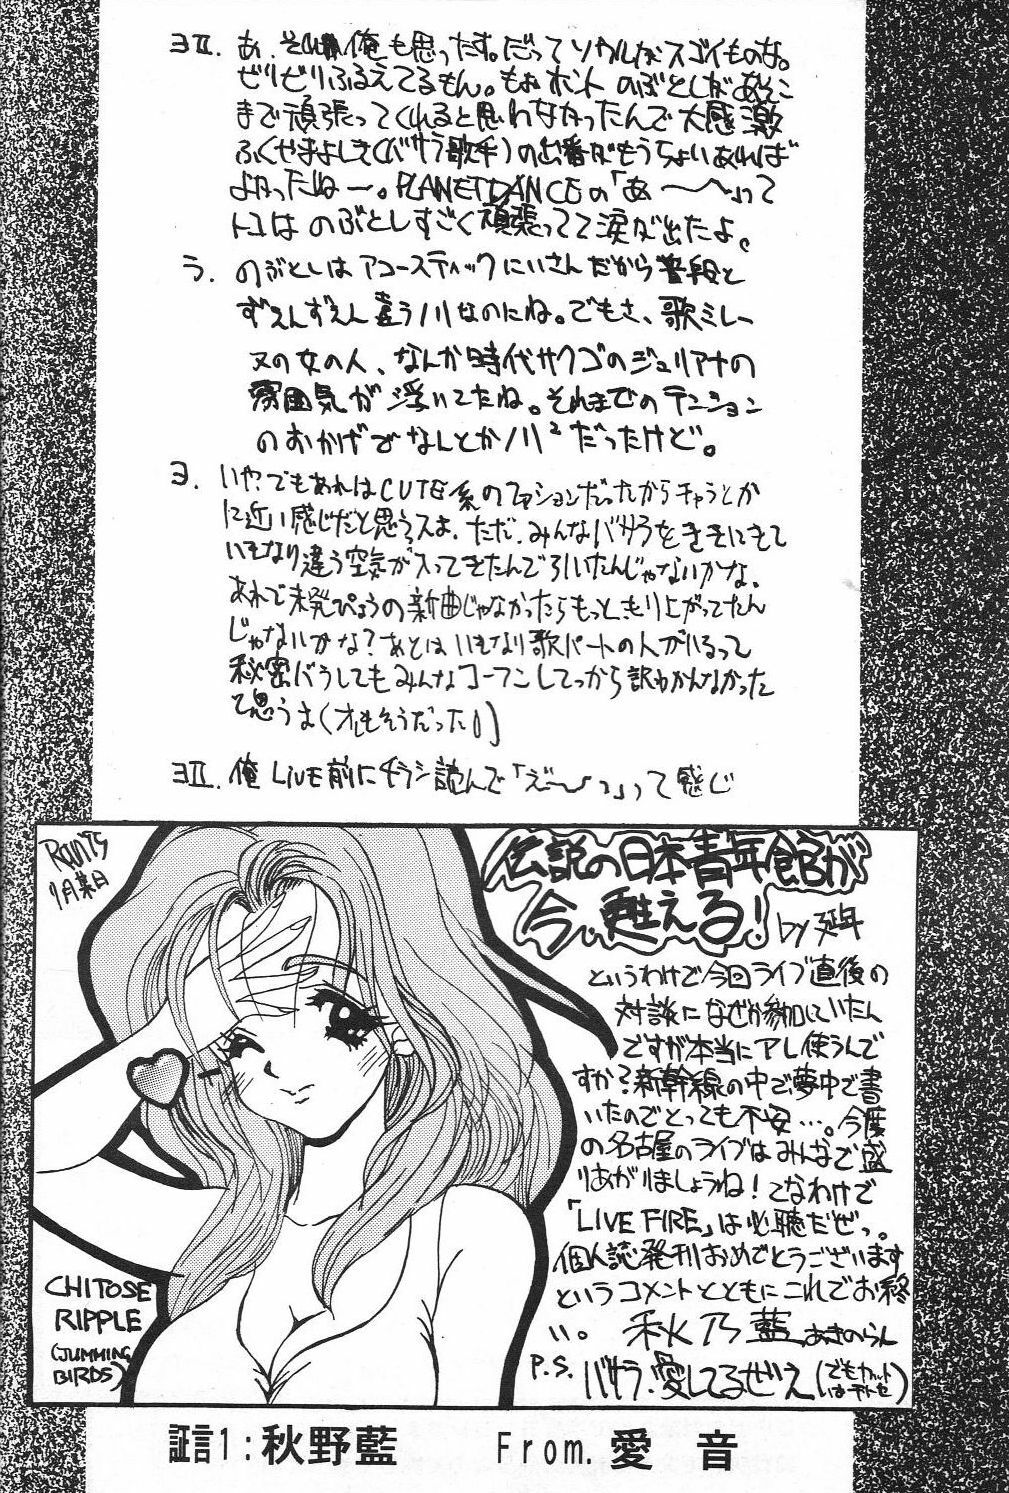 ヨII. あ、それ俺も思ったす。だってソウルがスゴイものな。
ビリビリふるえてるもん。もぉホント のぶとしがあそこ
まで頑張ってくれると思わなかったんで大感激
ふくやまよしき(バサラ歌手)の出番がもうちょいあれば
よかったねー。PLANET DANCEの「あ〜〜っ」って
トコは のぶとしすごく頑張ってて涙が出たよ。
う. のぶとしは アコースティックにいさんだから普段と
ずぇんずぇん違うノリなのにね。でもさ、歌ミレー
ヌの女の人、なんか時代サクゴのジュリアナの
雰囲気が浮いてたね。それまでのテンション
のおかげでなんとかノリノリだったけど。
ヨ. いや?でもあれはCUTE系のファッションだったからギャラとか
に近い感じだと思うスよ。ただ、みんなバサラをききにきて
いきなり違う空気が入ってきたんで引いたんじゃないかな。
あれで未発ぴょうの新曲じゃなかったらもっともり上がってたん
じゃないかな?あとはいきなり歌パートの人がいるって
秘密バラしてもみんなコーフンしてっから訳わかんなかった
て思うよ(オレもそうだった!)
ヨII. 俺 LIVE前にチラシ読んで「え〜〜っ」って感じ
伝説の日本青年館が
今、甦える! by 延年
というわけで今回ライブ直後の
対談になぜか参加していたん
ですが本当にアレ使うんで
すか?新幹線の中で夢中で書
いたのでとっても不安…。今度
の名古屋のライブはみんなで盛
りあがりましょうね!てなわけで
「LIVE FIRE」は必聴だぜっ。
個人誌発刊おめでとうございます
というコメントとともにこれでお終
い。 秋乃藍 あきのらん
P.S. バサラ、愛してるぜえ(でもカットはチトセ)
CHITOSE
RIPPLE
(JUMMING
BIRDS)
証言1:秋野藍 From.愛 音